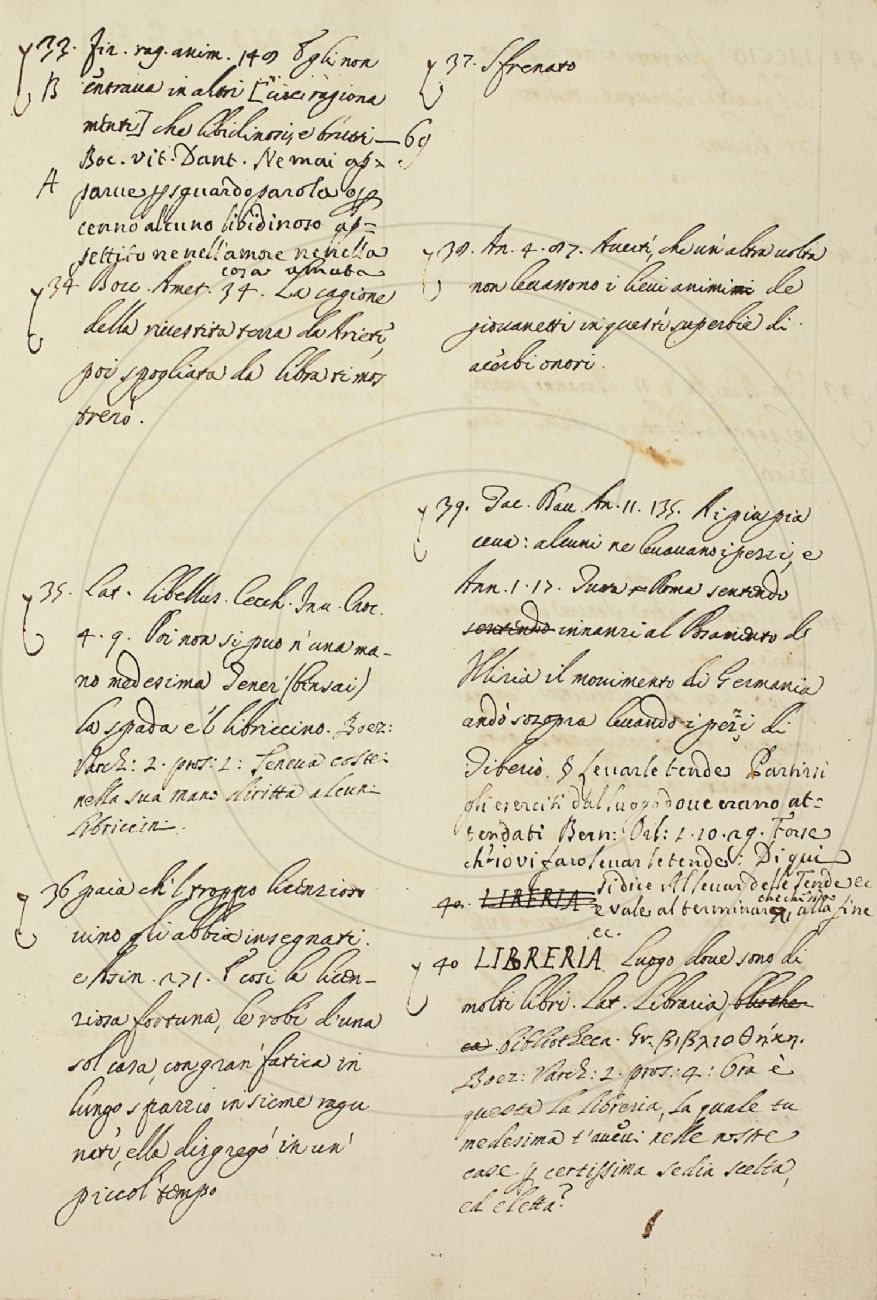 33. Fir. rag. anim. 140 Egli non
B entrava in altri [cioè ragiona
menti] che libidinosi, e brutti — 69
Boc. vit. Dant. Ne mai ap=
A parve p sguardo parola o p
cenno alcuno libidinoso ap=
petito ne nell'amore ne nella
cosa amata
34 Bocc. Amet. 34. La cagione
della rivestita terra da Arieti,
poi spogliata da libra ti mos
trerò.
35. Lat. libellus. Cecch. Inc.
4. 9. Poi non si può n'una ma-
no medesima Tener' (bensai)
la spada e 'l libriccino. Boez:
Varch: 2. pros: 2: Teneva coste:
nella sua mano diritta alcun:
libriccin:
36 paia ch'l troppo licenzioso
vino gli abbia insegnati.
e Asin. 271. E così la licen-
ziosa fortuna, le robe d'una
sol casa, con gran' fatica in
lungo spazzio insieme ragu
nate, ella disgregò in un'
piccol' tempo
37. Sfrenato
38. An. 4. 87. Avertì, che un' altra volta
non levassono i lievi animi de
giovanetti in questi superbie di
acerbi onori.
39. Tac. Dav. An. 11. 135. A i più pia
ceva: alcuni ne levavano i pezzi, e
Ann. 1. 17. Roma sentendo
sentendo innanzi al Posamento de
Illiria il movimento di Germania
andò sozopra levando i pezzi di
Tiberio. § Levar le tende Partirsi
gli eserciti dal luogo dove erano at=
tendati Bern: Orl: 1. 10. 29. Forse
ch'io vi farò levar le tende: Di qui
si dice Al levar delle Tende ec
40. LIBRERIA e vale al terminare, che che si sia, alla fine
ec.
40 LIBRERIA Luogo dove sono di
molti libri. Lat. Libraria, bliothe
ca bibliotheca. Gr. βιβλιοθήκη.
Boez: Varch: 2. pros: 4: Ora è
questa la libreria, la quale tu
medesima t'avevi nelle nostre
case p certissima sedia scelta,
ed eletta?